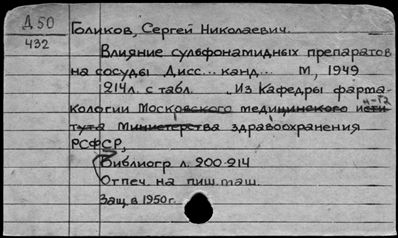 Д 50
432
Голиков, Сергей Николаевич.
Влияние сульфонамидных препаратов
на сосуды Дисс... канд... М, 1949
214л. с табл. . Из Кафедры фарма-
кологии Московского медицинского
н-та Министерства здравоохранения
РСФСР,
Библиогр л. 200-214
Отпеч. на пиш.маш.
Защ в 1950г.